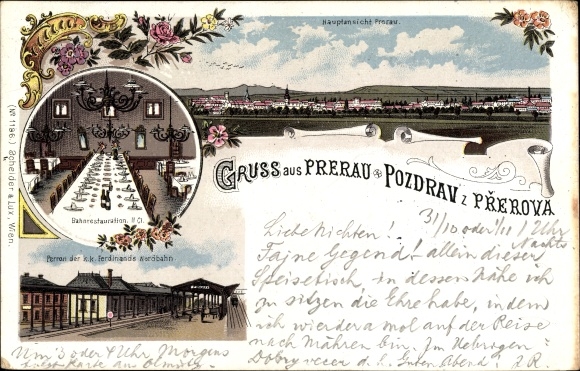 Hauptansicht Prerau.
(Nº 1186.) Scheider & Lux, Wien.
Bahnrestauration. II Cl.
GRUSS aus PRERAU * POZDRAV z PŘEROVA
Perron der k.k. Ferdinands Nordbahn
31/10 oder 1/11 / Uhr
Nachts
Liebe Nichten!
Fajne Gegend! allein dieser
Speisetisch, in dessen Nähe ich
zu sitzen die Ehre habe, indem
ich wierder a mol auf der Reise
nach Mähren bin. Im Uebrogen:
Dobry vecer d. h. Guten Abend!
Um 3 oder 4 Uhr Morgens
Karte an Olmütz